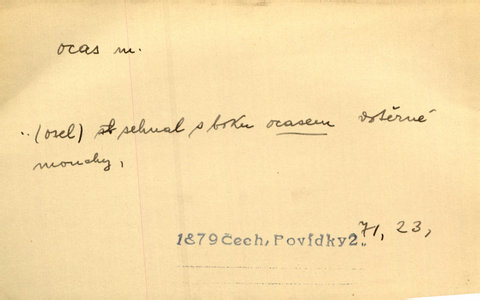 ocas m.
„(osel) sehnal s boku ocasem dotěrné
mouchy,
1879 Čech, Povídky 2. 71, 23,